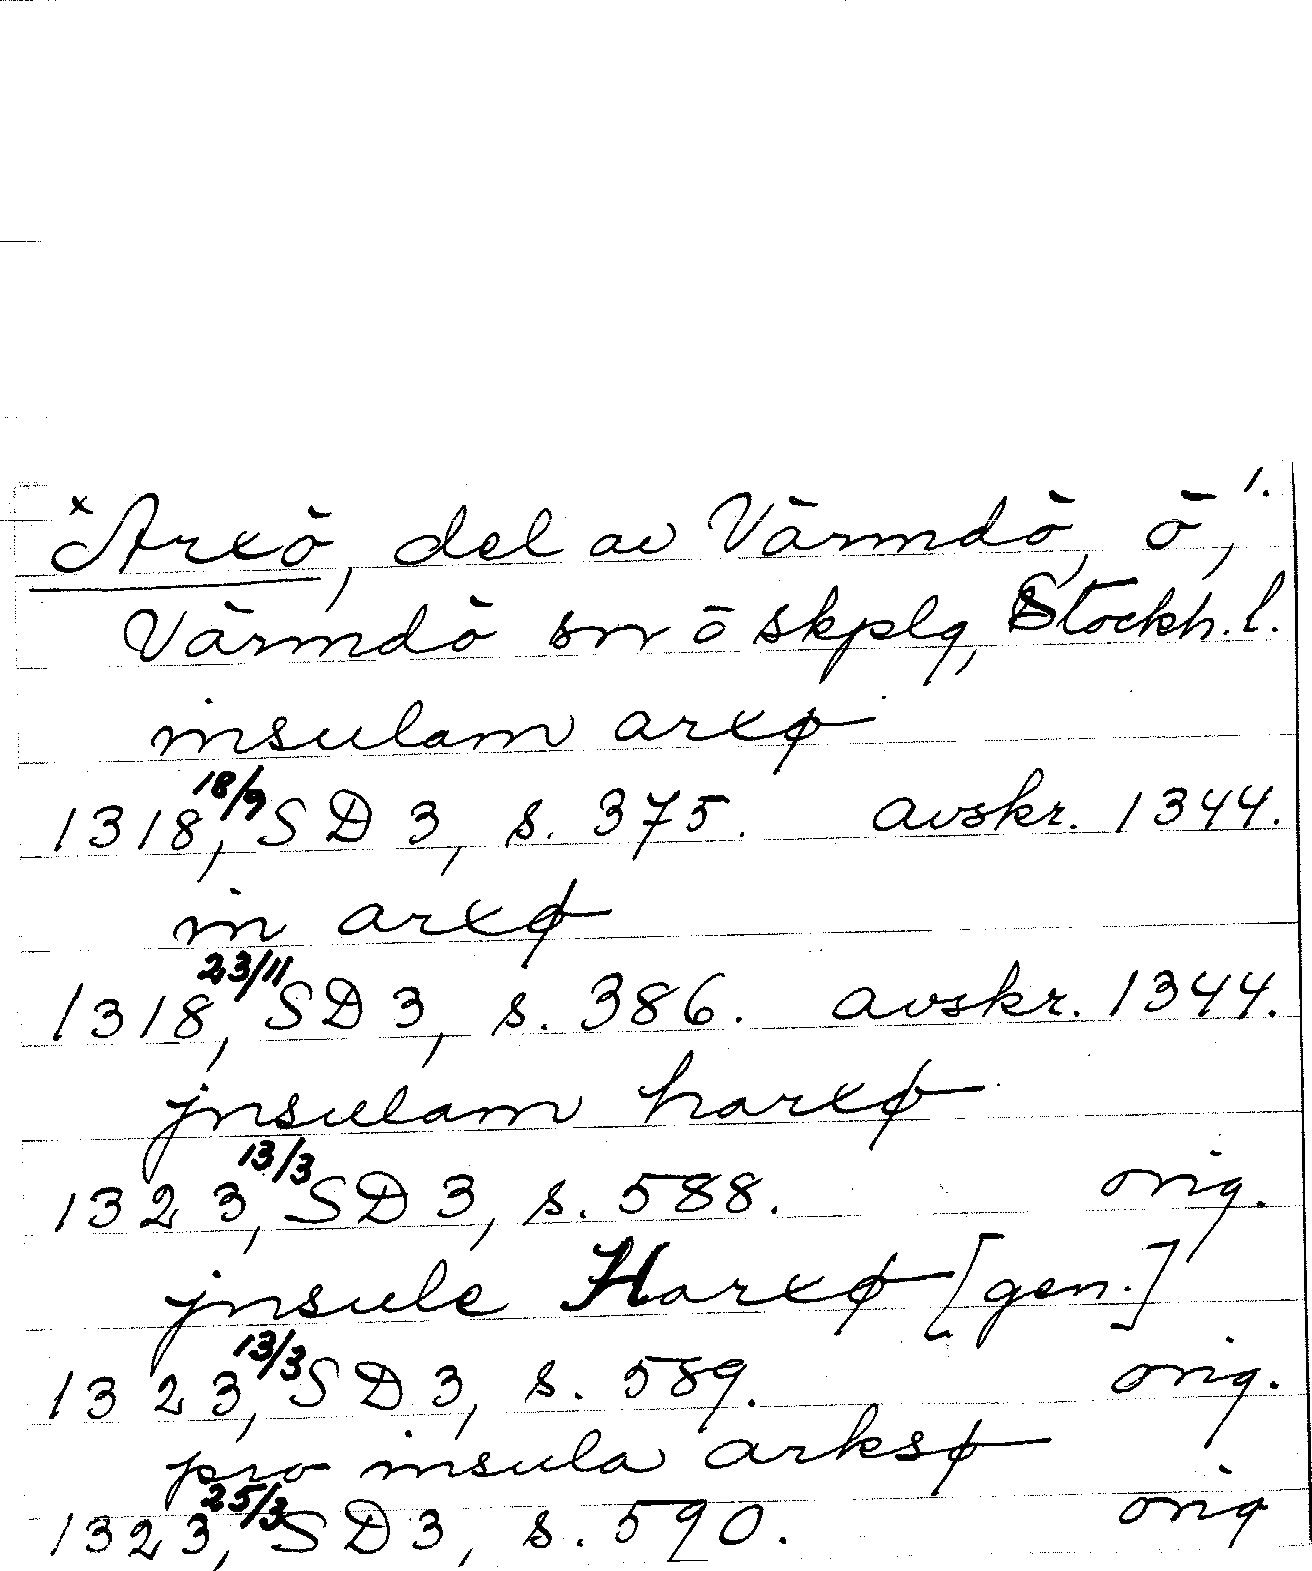 ˣArxö, del av Värmdö, ö, 1.
Värmdö sn o skplg, Stockh. l.
insulam arxø
1318 18/9, SD 3, s. 375. avskr. 1344.
in arxø
1318 23/11, SD 3, s. 386. avskr. 1344.
jnsulam harxø
1323 13/3, SD 3, s. 588. orig.
jnsule Harxø [gen.]
1323 13/3, SD 3, s. 589. orig.
pro insula arksø
1323 25/3, SD 3, s. 590. orig